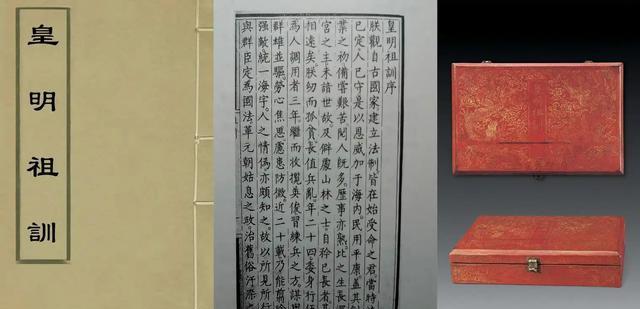 皇明祖訓
皇明祖訓序
朕觀自古國家建立法制皆在始受命之君當時法
已定人已守是以恩威加于海內民用平康蓋其創
業之初備嘗艱苦閱人既多歷事亦熟比之生長深
宮之主未諳世故及僻處山林之士自矜已長者甚
相遠矣朕幼而孤貧長值兵亂年二十四委身行伍
為人調用者三年繼而收攬英俊習練兵之方謀與
群雄並驅勞心焦思慮患防微近二十載乃能翦除
強敵統一海宇人之情偽亦頗知之故以所見所行
與群臣定為國法革元朝姑息之政治舊俗汙染之